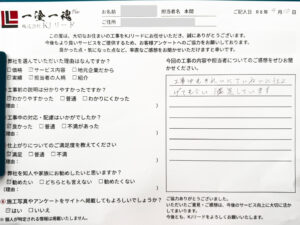 一塗一魂
KJリード
お名前
担当者名 本間
ご記入日
ご住所
この度は、大切なお住まいの工事をKJリードにお任せいただき、誠にありがとうございます。
今後もより良いサービスをご提供するため、お客様アンケートへのご協力をお願いしております。
良かった点・気になった点など、率直なご感想をお聞かせいただけますと幸いです。
弊社を選んでいただいた理由はなんですか?
価格 サービス内容 地元企業だから
実績 その他
(理由: )
工事前の説明は分かりやすかったですか?
わかりやすかった 普通 わかりにくかった
(理由: )
工事中の対応・配慮はいかがでしたか?
良かった 普通 不満があった
(理由: )
仕上がりについてのご満足度を教えてください
満足 普通 不満
(理由: )
弊社を知人や家族にお勧めしたいと思いますか?
勧めたい どちらとも言えない 勧めたくない
(理由: )
施工写真やアンケートをサイトへ掲載してもよろしいでしょうか?
はい いいえ
※個人が特定される情報は掲載いたしません。
今回の工事の内容や担当者へ、ご感想等をぜひお聞かせください。
満足しています
ご協力ありがとうございました。
いただいたご意見・ご感想は、今後のサービス向上に大切に活かしてまいります。
今後とも、KJリードをよろしくお願いいたします。